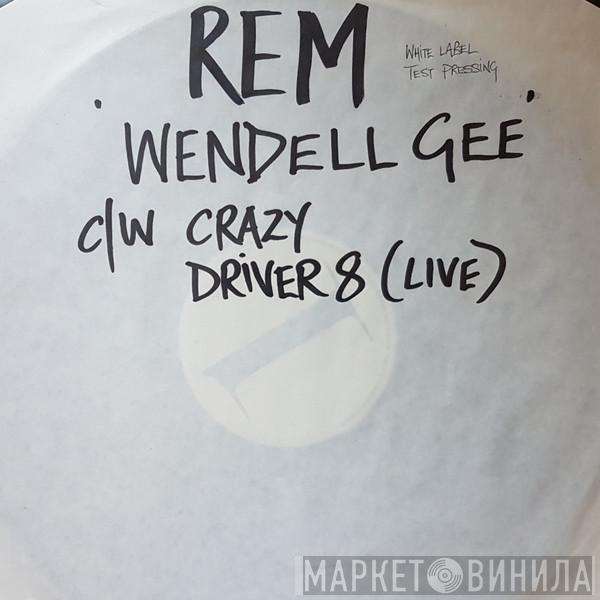 REM
WHITE LABEL
TEST PRESSING
WENDELL GEE
C/W CRAZY
DRIVER 8 (LIVE)
МАРКЕТ ВИНИЛА